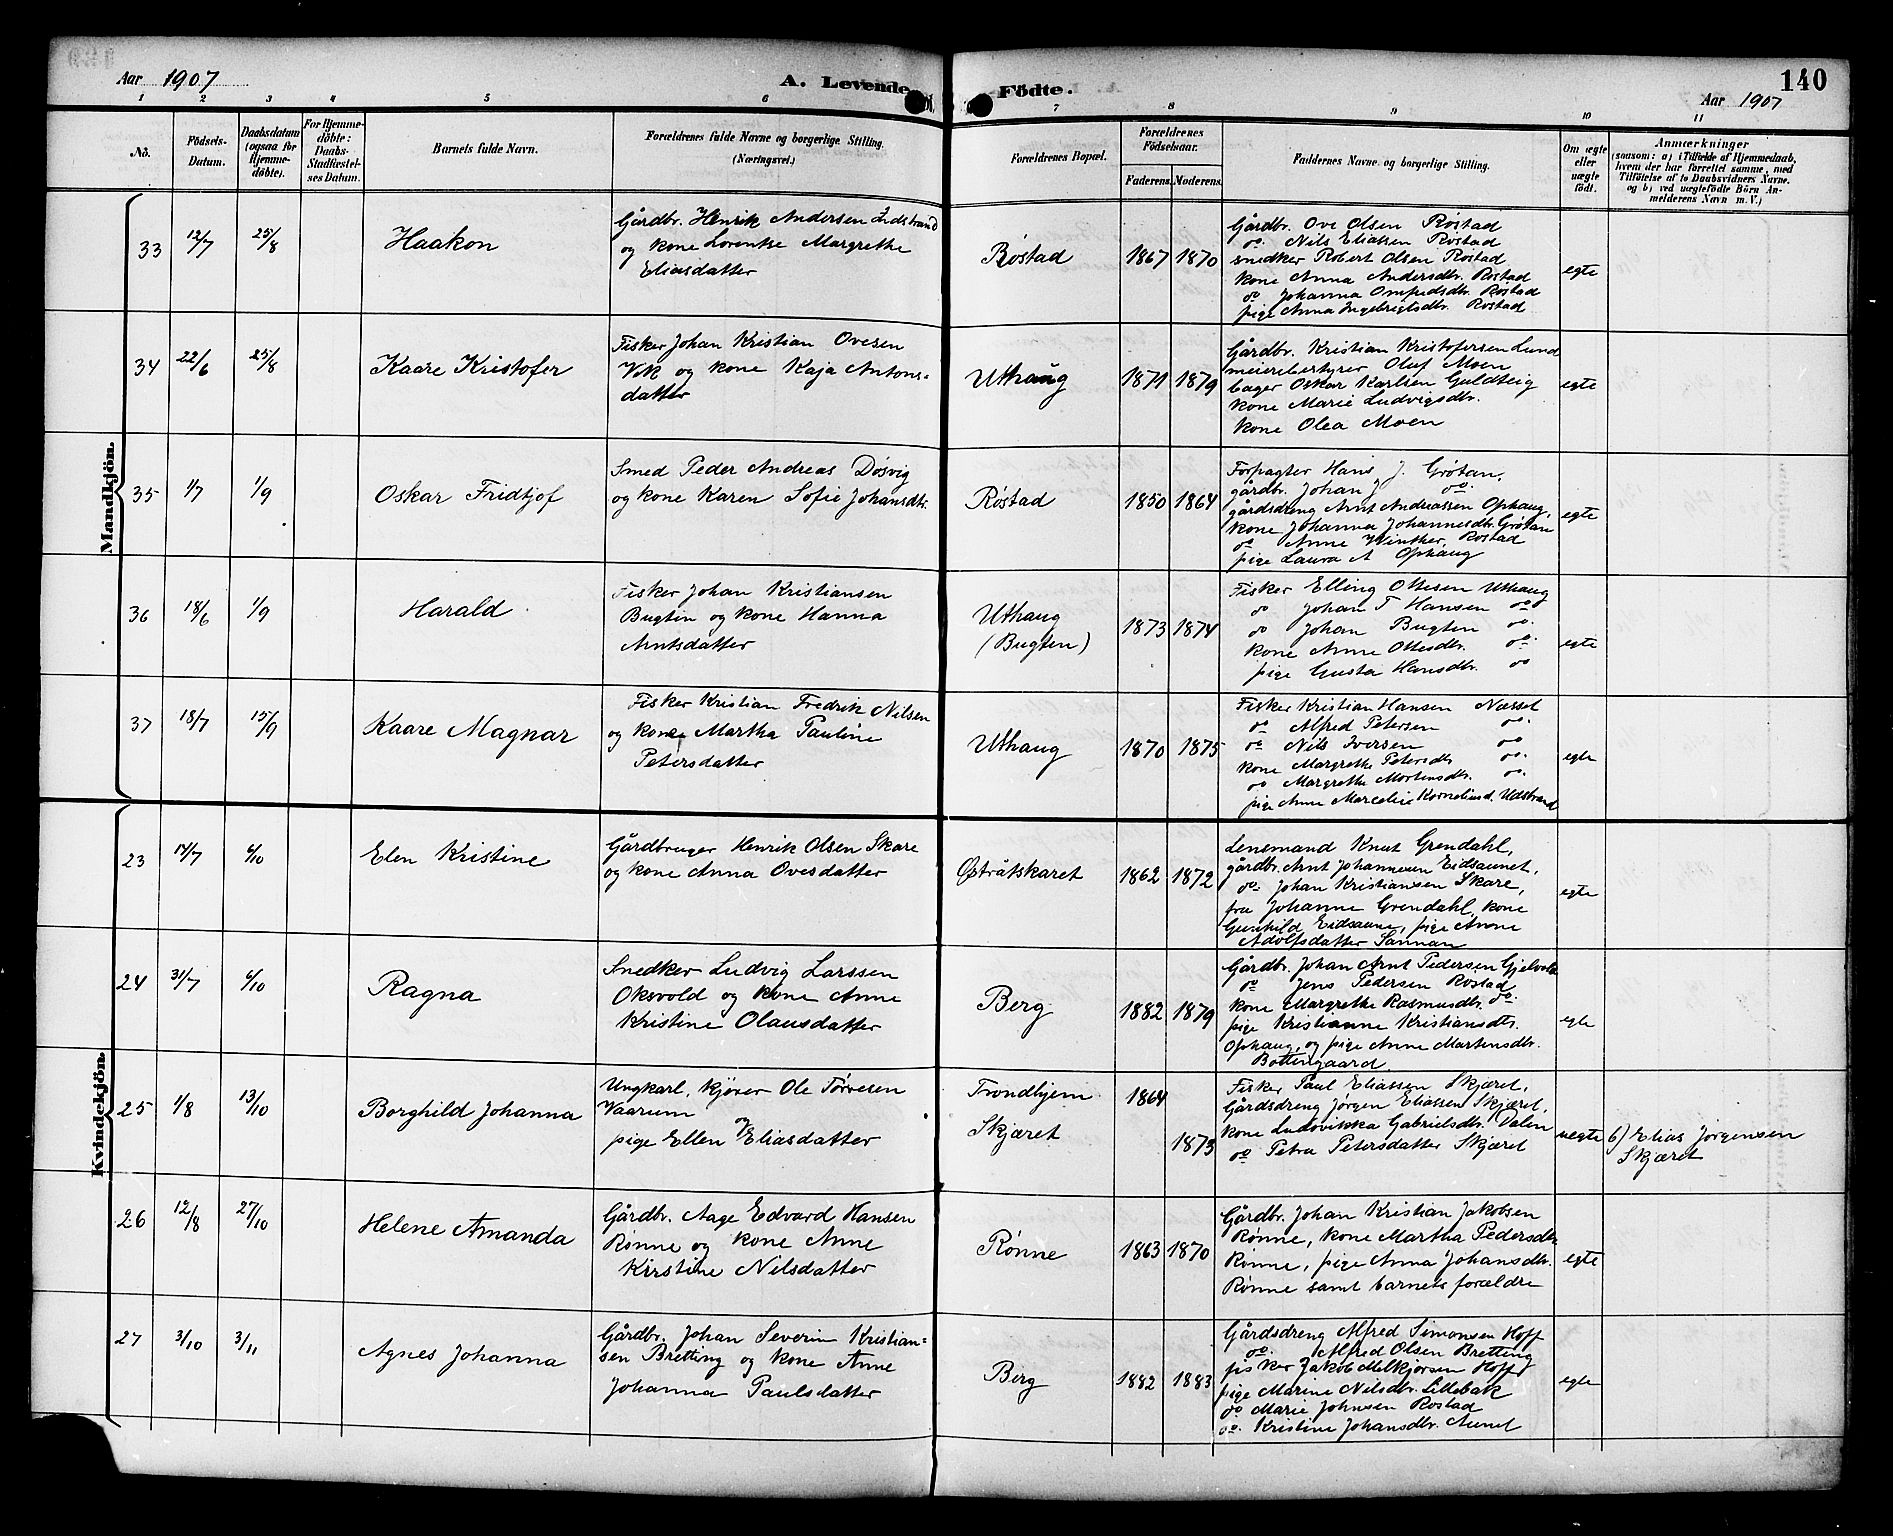 Aar 1907
A. Levende Födte.
140
Aar 1907
1 2 3 4 5 6 7 8 9 10 11
No.
Födsels-Datum.
Daabsdatum (ogsaa for Hjemme-döbte).
For Hjemme-döbte: Daabs-Stadfæstel-ses Datum.
Barnets fulde Navn.
Forældrenes fulde Navne og borgerlige Stilling. (Næringsvei.)
Forældrenes Bopæl.
Forældrenes Födselsaar.
Faderens. Moderens.
Faddernes Navne og borgerlige Stilling.
Om ægte eller uægte födt.
Anmærkninger
(saasom: a) i Tilfælde af Hjemmedaab,
hvem der har forrettet samme, med
Tilföielse af to Daabsvidners Navne.
og b) ved uægtefödte Börn An-
melderens Navn m. V.)
Mandkjön.
33 12/7 25/8 Haakon
Gårdbr. Henrik Andersen Indstrand
og kone Lorentse Margrethe
Eliasdatter
Røstad 1867 1870
Gårdbr. Ove Olsen Røstad
do. Nils Eliassen Røstad
snedker Robert Olsen Røstad
kone Anna Andersdtr. Røstad
do Johanna Ommedsdtr. Røstad
pige Anna Ingebrigtsdtr. Røstad
egte
34 22/6 25/8 Kaare Kristofer
Fisker Johan Kristian Ovesen
Vik og kone Kaja Antons-
datter
Uthaug 1871 1879
Gårdbr. Kristian Kristofersen Lund
meieribestyrer Oluf Moen
bager Oskar Karlsen Guldteig
kone Marie Ludvigsdtr.
kone Olea Moen
egte
35 1/7 1/9 Oskar Fridtjof
Smed Peder Andreas Døsvig
og kone Karen Sofie Johansdtr.
Røstad 1850 1864
Forpagter Hans J. Grøtan,
gårdbr. Johan J do.
gårdsdreng Arnt Andreassen Ophaug,
kone Johanna Johannesdtr. Grøtan
do Anne Winther Røstad
pige Laura A Ophaug
egte
36 18/6 1/9 Harald
Fisker Johan Kristiansen
Bugtin og kone Hanna
Arntsdatter
Uthaug
(Bugten) 1873 1874
Fisker Elling Ottesen Uthaug
do Johan T Hansen do
do Johan Bugten do
kone Anne Ottesdtr. do.
pige Gusta Hansdtr. do
egte
37 18/7 15/9 Kaare Magnar
Fisker Kristian Fredrik Nilsen
og kone Martha Pauline
Petersdatter
Uthaug 1870 1875
Fisker Kristian Hansen Næsset
do Alfred Petersen do.
do Nils Iversen do
kone Margrethe Petersdtr do.
do Margrethe Mortensdtr. do.
pige Anne Marcelie Korneliusd. Udstrand
egte
Kvindekjön.
23 17/7 6/10 Elen Kristine
Gårdbruger Henrik Olsen Skare
og kone Anna Ovesdatter
Østråtskaret 1862 1872
Lensmand Knut Grendahl,
gårdbr. Arnt Johannesen Eidsaunet,
do. Johan Kristiansen Skare,
fru Johanne Grendahl, kone
Gunhild Eidsaune, pige Anne
Adolfsdatter Sannan
egte
24 31/7 6/10 Ragna
Snedker Ludvig Larssen
Oksvold og kone Anne
Kristine Olausdatter
Berg 1882 1879
Gårdbr. Johan Arnt Pedersen Gjelvold
do. Jens Pedersen Røstad
kone Margrethe Rasmusdtr. do.
pige Kristianne Kristiansdtr.
Ophaug, og pige Anne Martensdtr.
Bottengaard.
egte
25 1/8 13/10 Borghild Johanna
Ungkarl, kjører Ole Tørresen
Vaarum og
pige Ellen Eliasdatter
Trondhjem 1864
Skjæret 1873
Fisker Paul Eliassen Skjæret,
Gårdsdreng Jørgen Eliassen Skjæret,
kone Ludovikka Gabrielsdtr. Dalen
do Petra Petersdatter Skjæret
uegte
b) Elias Jørgensen
Skjæret
26 12/8 27/10 Helene Amanda
Gårdbr. Aage Edvard Hansen
Rønne og kone Anne
Kirstine Nilsdatter
Rønne 1863 1870
Gårdbr. Johan Kristian Jakobsen
Rønne, kone Martha Pedersdtr
Rønne, pige Anna Johansdtr.
Rønne samt barnets forældre
egte
27 3/10 3/11 Agnes Johanna
Gårdbr. Johan Severin Kristian-
sen Bretting og kone Anne
Johanna Paulsdatter
Berg 1882 1883
Gårdsdreng Alfred Simonsen Hoff
do. Alfred Olsen Bretting
fisker Jakob Melkjorsen Hoff
pige Marine Nilsdtr. Lillebak
do Marie Johnsen Røstad
do. Kristine Johansdtr. Aunet
egte